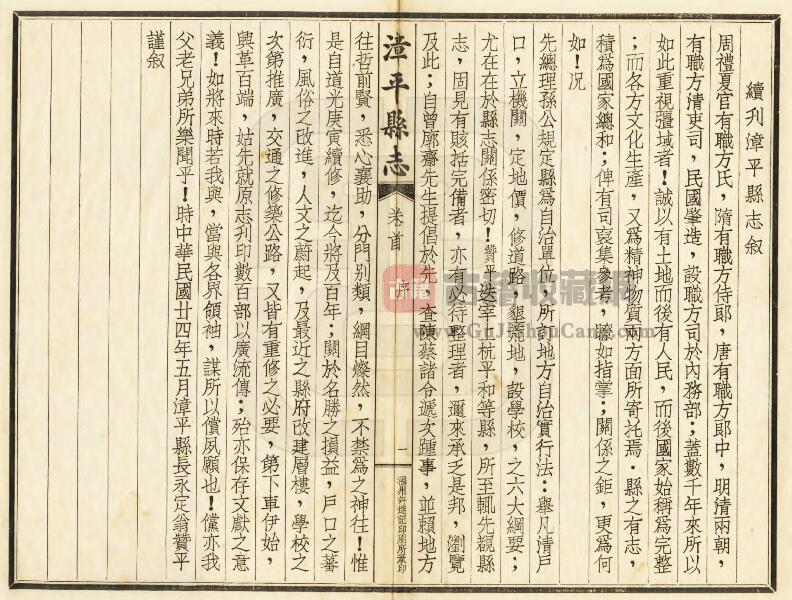 續刋漳平縣志叙
周禮夏官有職方氏，隋有職方侍郎，唐有職方郎中，明清兩朝，
有職方清吏司，民國肇造，設職方司於內務部；蓋數千年來所以
如此重視疆域者！誠以有土地而後有人民，而後國家始稱爲完整
；而各方文化生產，又爲精神物質兩方面所寄托焉．縣之有志，
積爲國家總和；俾有司裒集參考，瞭如指掌；關係之鉅，更爲何
如！况
先總理孫公規定縣爲自治單位，所訂地方自治實行法：舉凡清戶
口，立機關，定地價，修道路，墾荒地，設學校，之六大綱要；
尤在在於縣志關係密切！贊平迭宰上杭平和等縣，所至輒先覩縣
志，固見有賅括完備者，亦有必待整理者，邇來承乏是邦，瀏覽
及此；自曾廓齋先生提倡於先，查陳蔡諸令遞次踵事，並賴地方
漳平縣志
卷首
序
一
福州許鴻記印刷所承印
往哲前賢，悉心襄助，分門别類，綱目燦然，不禁爲之神往！惟
是自道光庚寅續修，迄今將及百年；關於名勝之損益，戶口之蕃
衍，風俗之改進，人文之蔚起，及最近之縣府改建層樓，學校之
次第推廣，交通之修築公路，又皆有重修之必要，第下車伊始，
興革百端，姑先就原志刋印數百部以廣流傳；殆亦保存文獻之意
義！如將來時若我與，當與各界領袖，謀所以償夙願也！儻亦我
父老兄弟所樂聞乎！時中華民國廿四年五月漳平縣長永定翁贊平
謹叙
古籍收藏网
www.GuJiShouCang.com